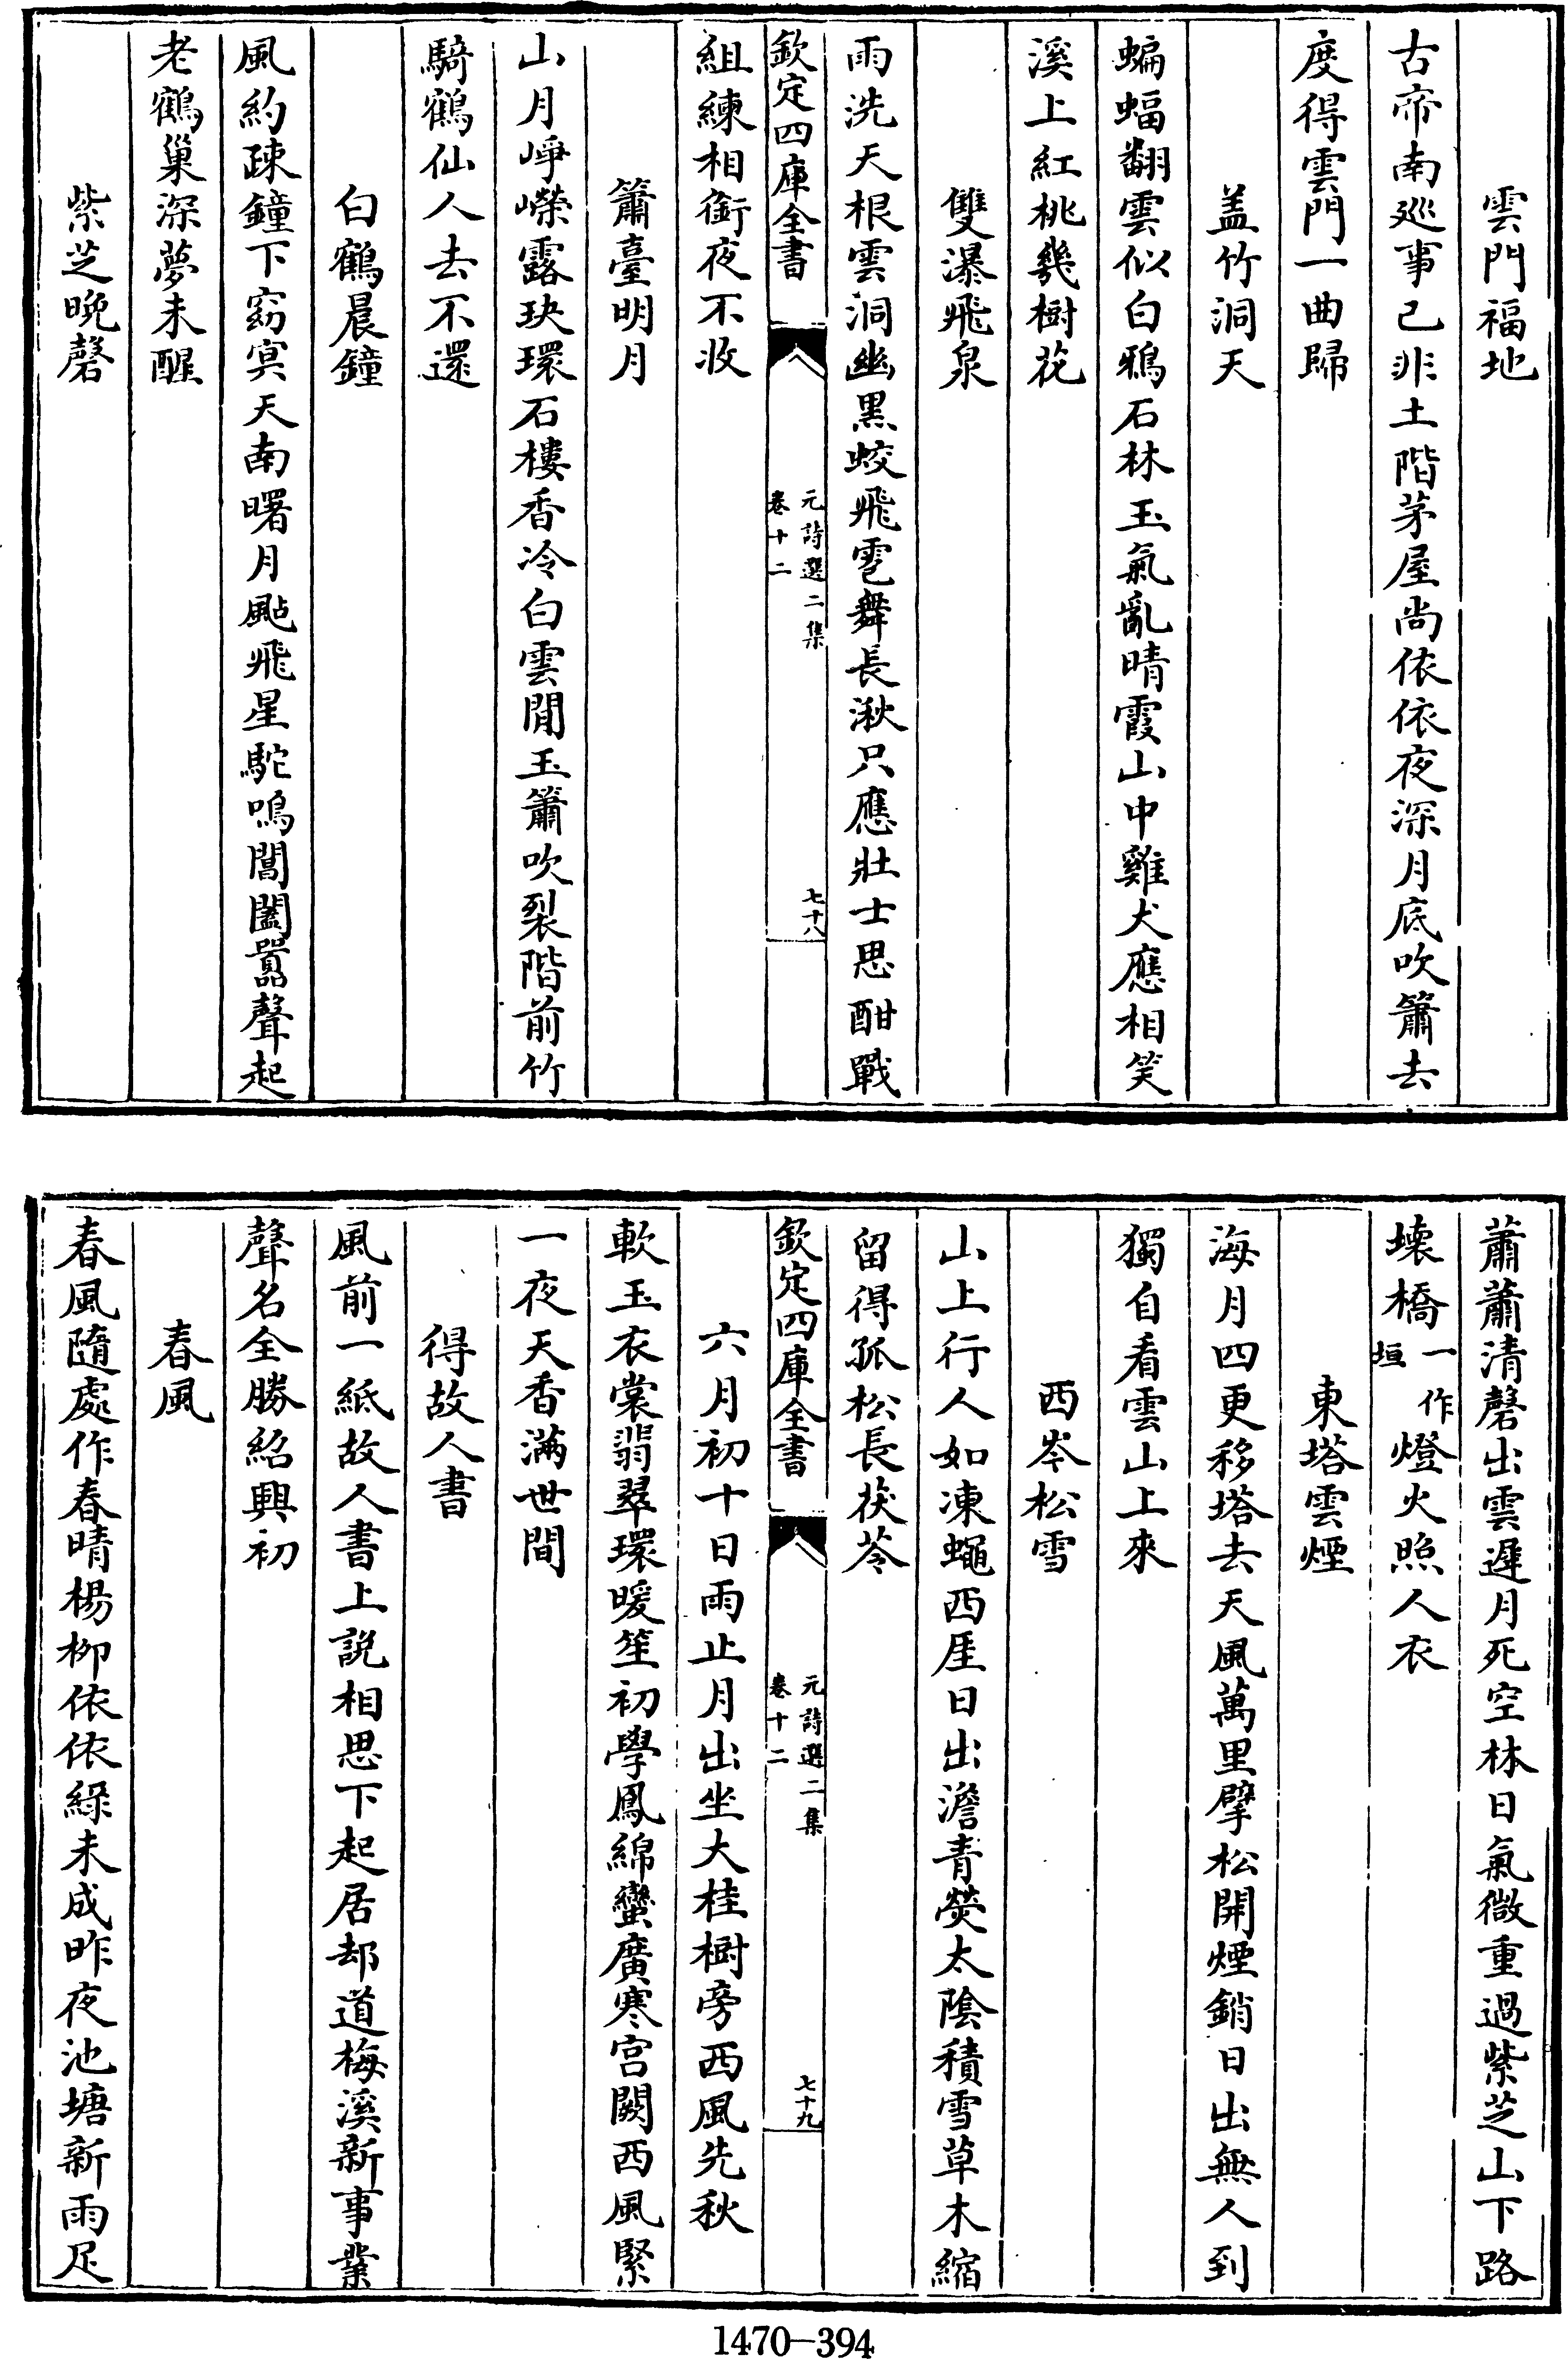 雲門福地
古帝南巡事已非土階茅屋尚依依夜深月底吹簫去
度得雲門一曲歸
盖竹洞天
蝙蝠翻雲似白鴉石林玉氣亂晴霞山中雞犬應相笑
溪上紅桃幾樹花
雙瀑飛泉
雨洗天根雲洞幽黒蛟飛雹舞長湫只應壯士思酣戰
欽定四庫全書
元詩選二集
卷十二
七十八
組練相銜夜不收
簫臺明月
山月崢嶸露玦環石樓香冷白雲閒玉簫吹裂階前竹
騎鶴仙人去不還
白鶴晨鐘
風約疎鐘下窈冥天南曙月颭飛星駝鳴閶闔囂聲起
老鶴巢深夢未醒
紫芝晩磬
蕭蕭清磬出雲遲月死空林日氣微重過紫芝山下路
壊橋一作垣燈火照人衣
東塔雲煙
海月四更移塔去天風萬里擘松開煙銷日出無人到
獨自看雲山上來
西岑松雪
山上行人如凍蠅西厓日出澹青熒太陰積雪草木縮
留得孤松長茯苓
欽定四庫全書
元詩選二集
卷十二
七十九
六月初十日雨止月出坐大桂樹旁西風先秋
軟玉衣裳翡翠環暖笙初學鳳綿蠻廣寒宫闕西風緊
一夜天香滿世間
得故人書
風前一紙故人書上說相思下起居却道梅溪新事業
聲名全勝紹興初
春風
春風隨處作春晴楊柳依依緑未成昨夜池塘新雨足
1470-394